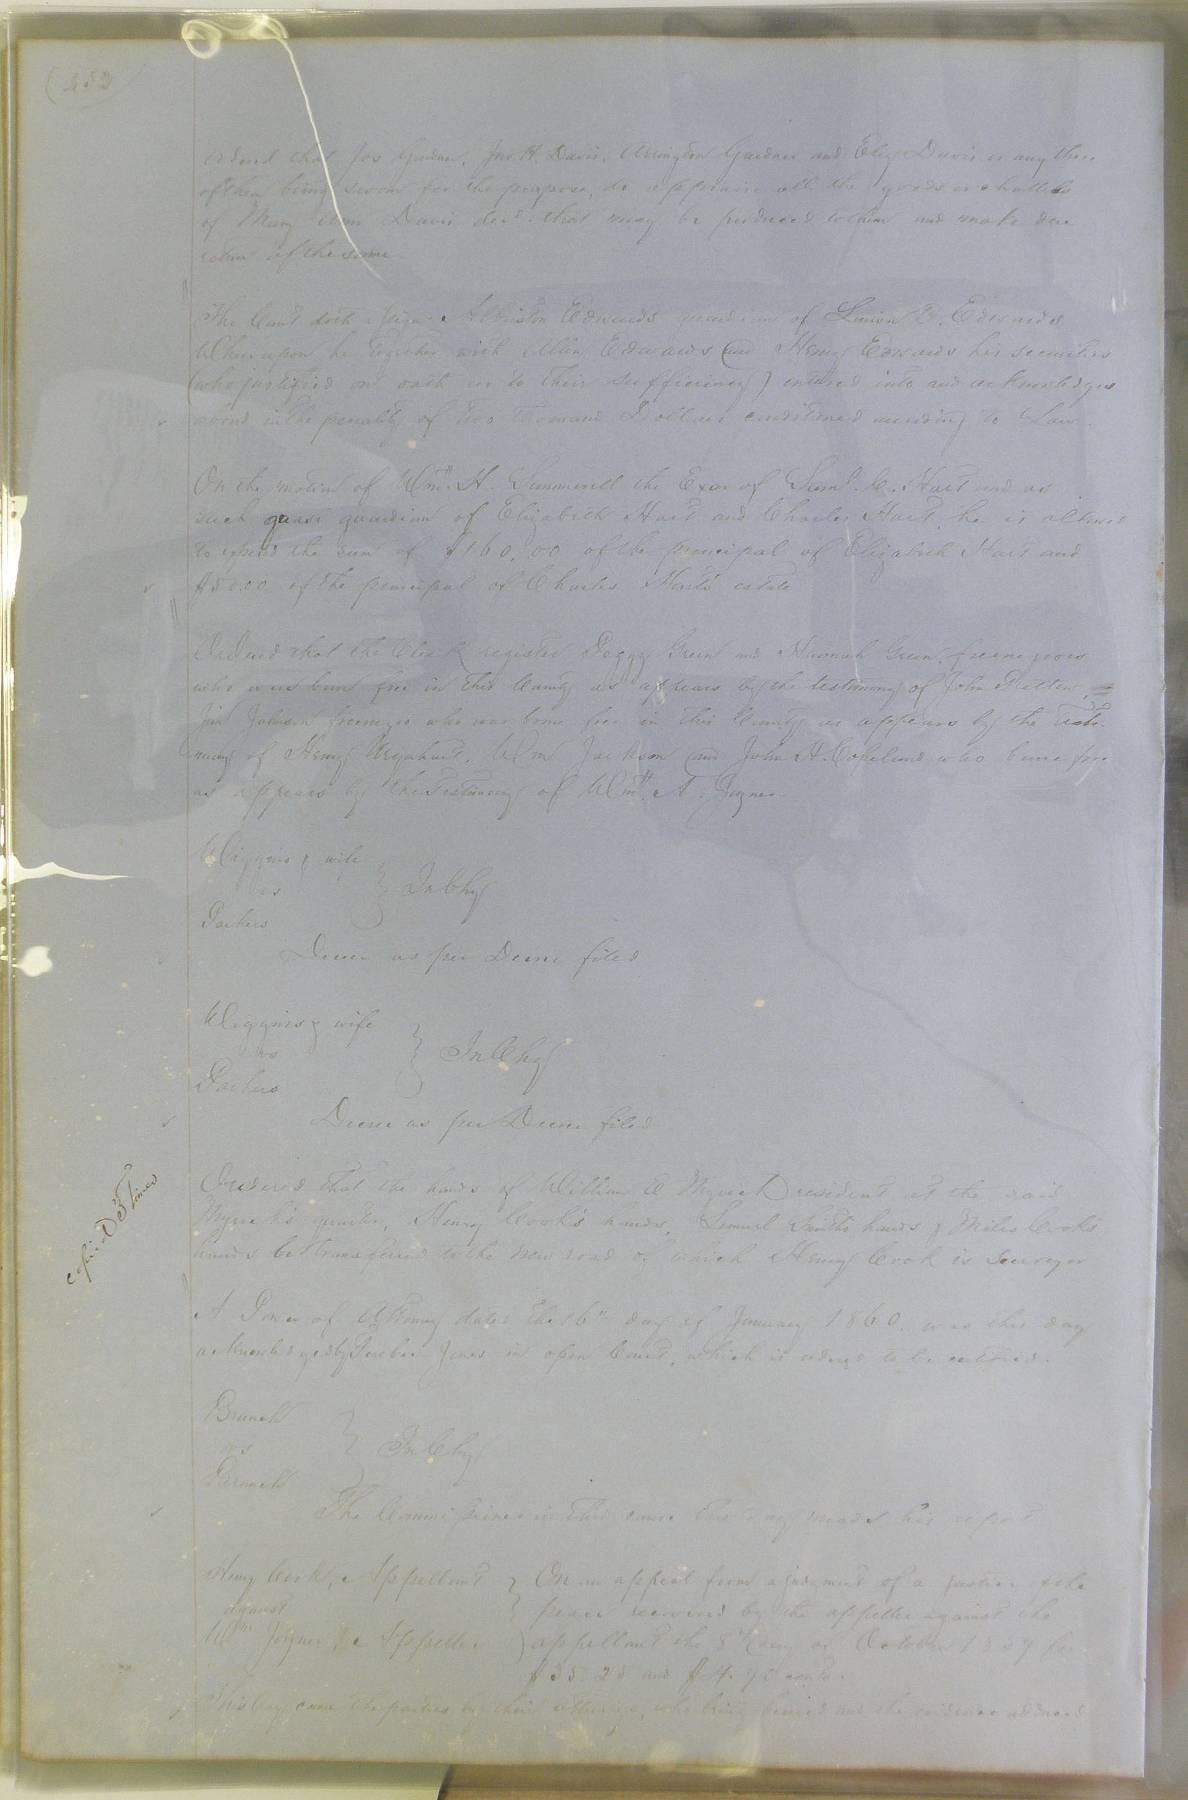 (252
Ordered that Jos Gardner, Jno. H. Davis, Arrington Gardner and Eley Davis or any three
of them being sworn for the purpose, do appraise all the goods & chattels
of Mary Ann Davis decd. that may be produced to them and make due
return of the same
The Court doth assign Albriston Edwards guardian of Edwards
Whereupon he together with Allen Edwards and Henry Edwards his securities
(who justified on oath as to their sufficiency) entered into and acknowledges
bond in the penalty of two thousand Dollars conditioned according to Law.
On the motion of Wm. H. Summerell the Exor of Saml. C. Hart and as
such quasi guardian of Elizabeth Hart and Charles Hart, he is allowed
to expend the sum of $160.00 of the principal of Elizabeth Hart and
$50.00 of the principal of Charles Hart's estate
Ordered that the Clerk register Peggy Green and Hannah Green, free negroes
who were born free in this County as appears by the testimony of John
Jim Johnson free negro who was borne free in this County as appears by the testi-
mony of Henry Urquhart, Wm Jackson and John H. Copeland who borne free
as appears by the Testimony of Wm. A. Joyner
Wiggins & wife
vs } In Chy
Barkers
Decree as per Decree filed
Wiggins & wife
vs } In Chy
Barkers
Decree as per Decree filed
copied 3 times
Ordered that the hands of William E Myrick resident at the said
Myrick's quarter, Henry Cook's hands, Lemuel Smith's hands & Miles Cook's
hands be transferred to the New road of which Henry Cook is Surveyor
A Power of Attorney dated the 16" day of January 1860. was this day
acknowledged by Jones in open Court, which is ordered to be certified.
Branch
vs } In Chy
Branch
The Commissioner in this cause this day made his report
Henry Cook, Appellant } On an appeal from a judgment of a justice of the
against } peace recovered by the appellee against the
Wm Joyner, Appellee } appellant the 8 day of October 1859 for
$35.25 and
This day came the parties by their attorneys, who being heard and the evidence adduced